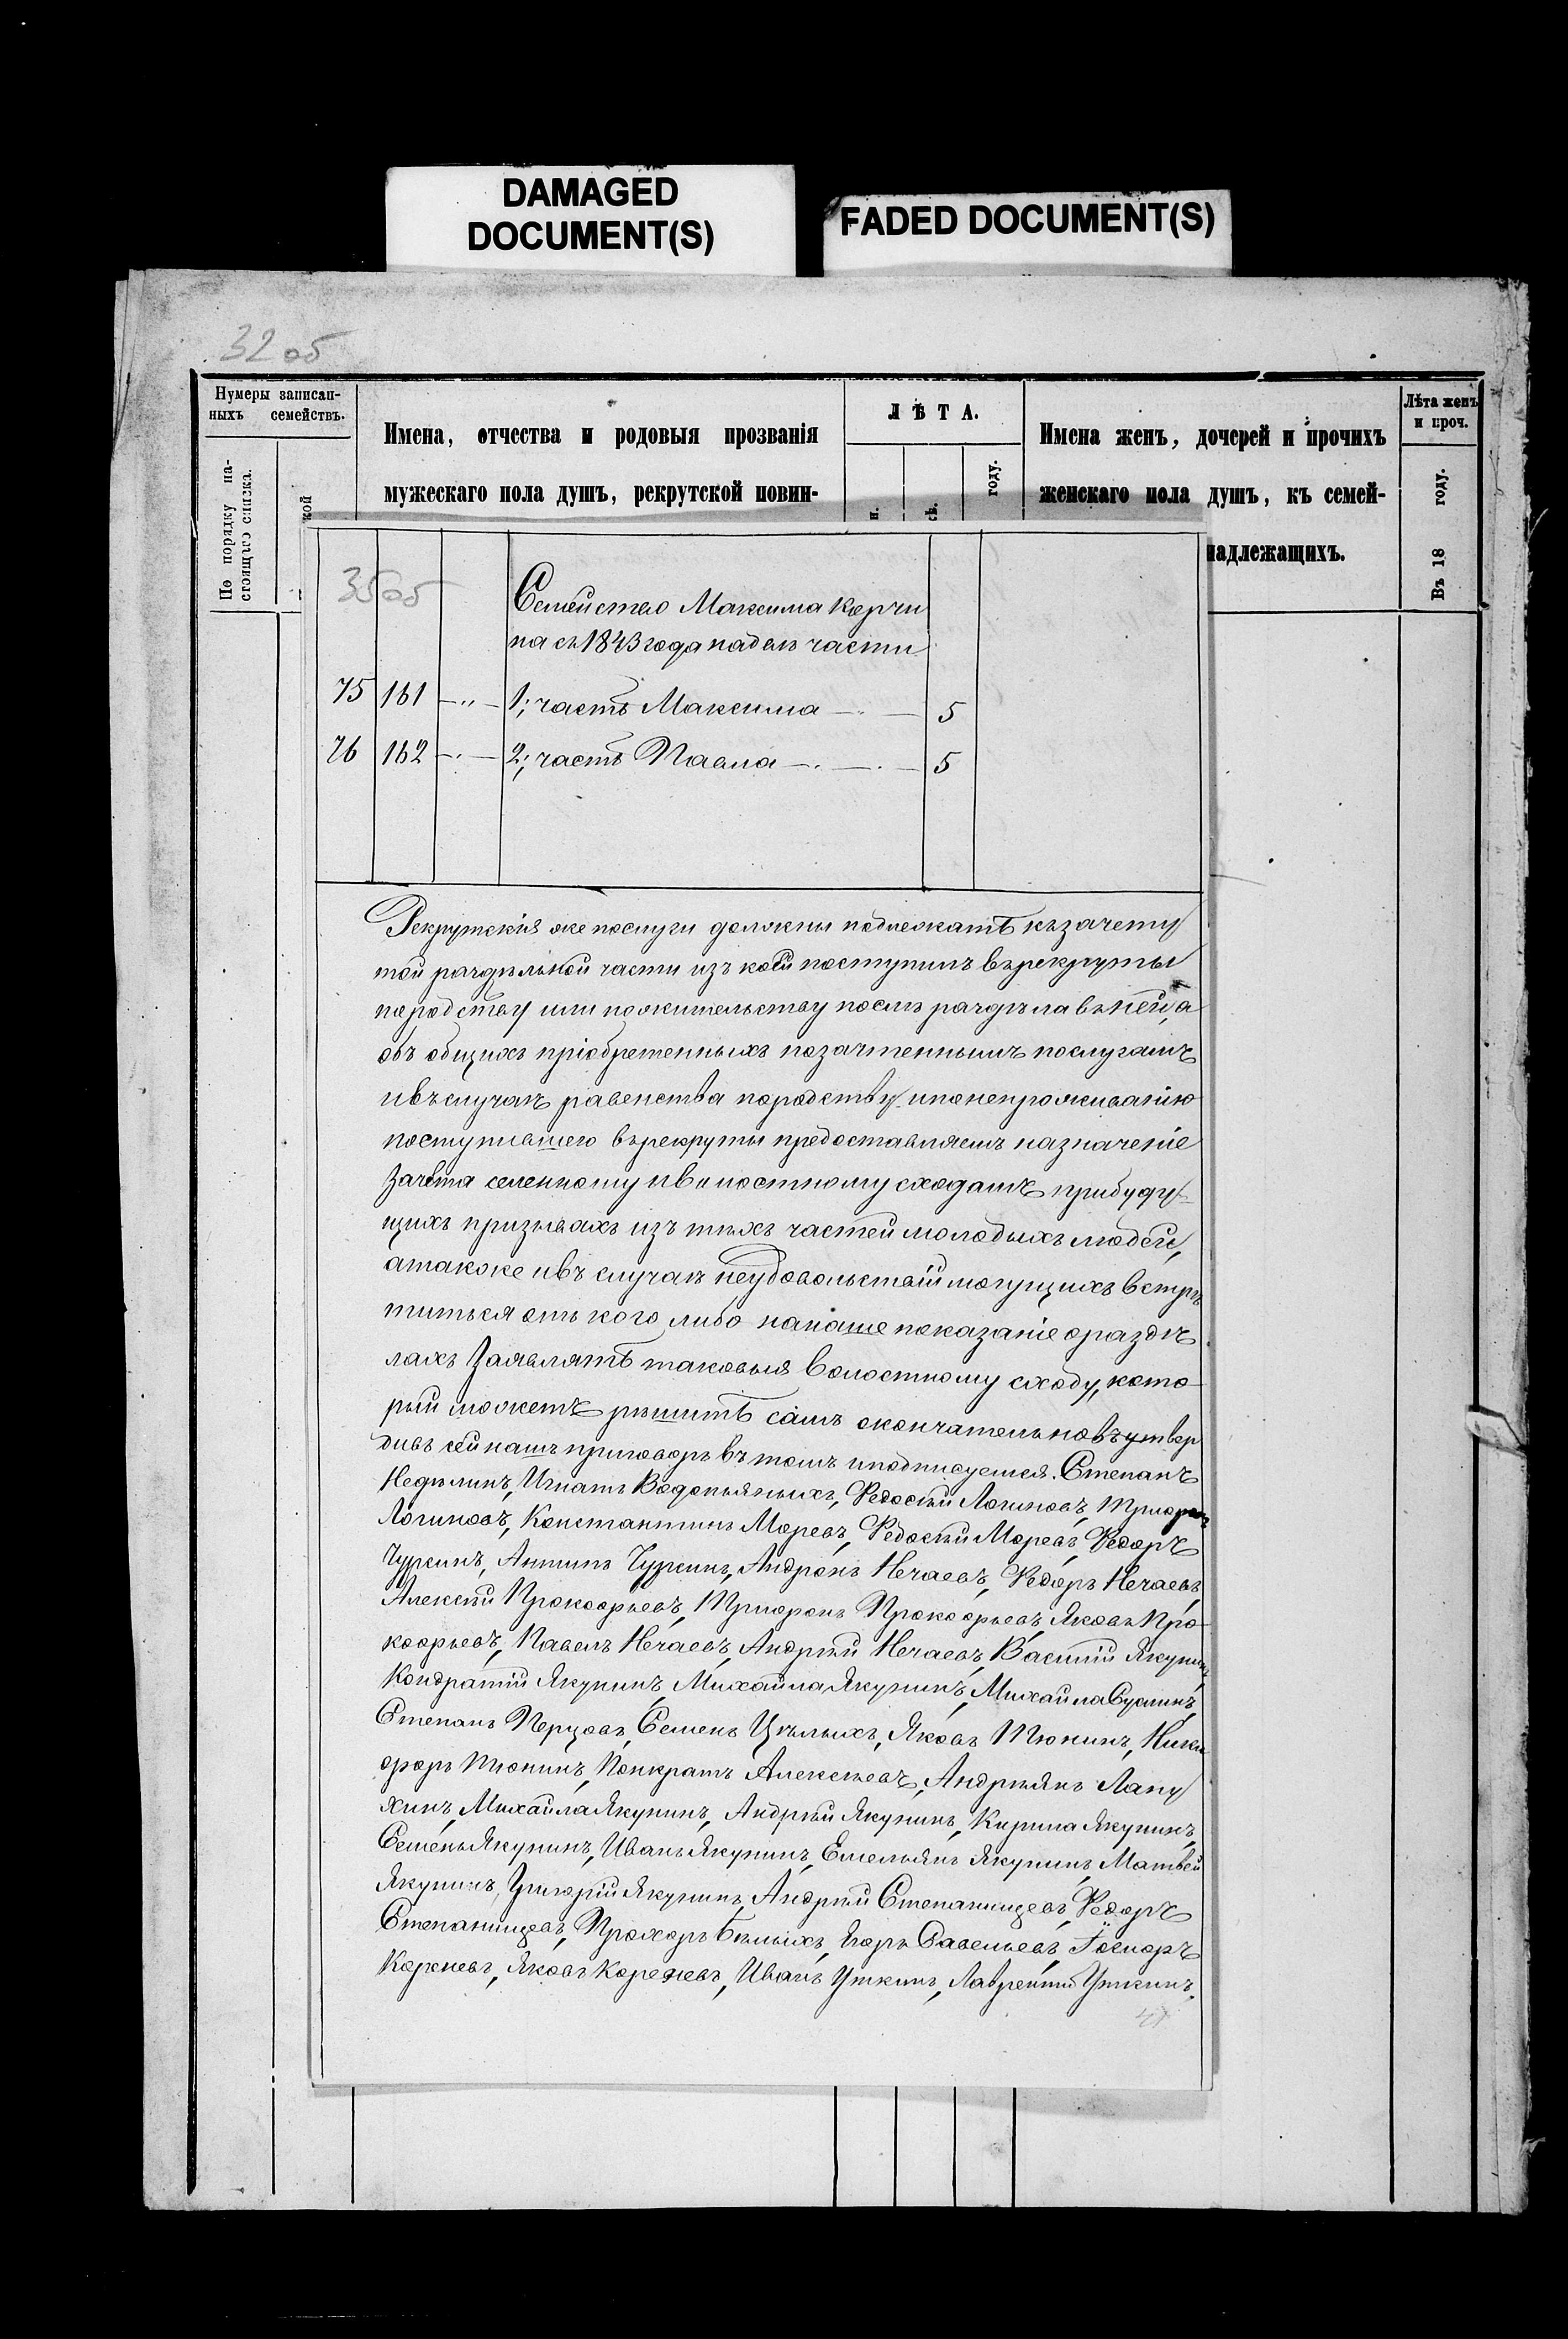 DAMAGED
DOCUMENT(S)
FADED DOCUMENT(S)
32 об
Нумеры записан-
ныхъ семействъ.
По порядку на-
стоящаго списка.
кой
Имена, отчества и родовыя прозванія
мужескаго пола душъ, рекрутской повин-
ЛѢТА.
году.
Имена женъ, дочерей и прочихъ
женскаго пола душъ, къ семей-
надлежащихъ.
Лѣта женъ
и проч.
Въ 18 году.
35 об
Семейство Максима Корчи
на съ 1843 года на двѣ части
75 161 —"— 1; часть Максима — 5
76 162 —"— 2; часть Павла — 5
Рекрутскія же послуги должны подлежать къ зачету
той раздѣльной части изъ коей поступилъ въ рекруты
породству или пожительству послѣ раздѣла въ ней, а
объ общихъ пріобретенныхъ позачтеннымъ послугамъ
ивъ случаѣ равенства породству ипонепроживанію
поступившего върекруты предоставляемъ назначеніе
зачета селенному иволостному сходамъ прибуду-
щихъ призывахъ изъ тѣхъ частей молодыхъ людей,
атакже ивъ случаѣ неудовольствій могущихъ встрѣ
титься отъ кого либо нанаше показаніе ораздѣ
лахъ Заявлять таковыя Волостному сходу, кото
рый можетъ рѣшить самъ окончательно утвер
дивъ сей нашъ приговоръ въ томъ иподписуемся. Степанъ
Недѣлинъ, Игнатъ Водопьяныхъ, Федосѣй Логиновъ, Трифонъ
Логиновъ, Константинъ Моревъ, Федосѣй Моревъ, Федоръ
Чуркинъ, Антипъ Чуркинъ, Андронъ Нечаевъ, Федоръ Нечаевъ,
Алексѣй Прокофьевъ, Трифонъ Прокофьевъ, Яковъ Про
кофьевъ, Павелъ Нечаевъ, Андрѣй Нечаевъ, Василій Якунинъ,
Кондратій Якунинъ, Михайла Якунинъ, Михайла Суслинъ,
Степанъ Перцовъ, Семенъ Цѣлыхъ, Яковъ Тюнинъ, Ники
форъ Тюнинъ, Понкратъ Алексѣевъ, Андрѣянъ Лапу
хинъ, Михайла Якунинъ, Андрѣй Якунинъ, Кирила Якунинъ,
Семенъ Якунинъ, Иванъ Якунинъ, Емельянъ Якунинъ, Матвей
Якунинъ, Григорій Якунинъ, Андрѣй Степанищевъ, Федоръ
Степанищевъ, Прохоръ Бѣлыхъ, Егоръ Савельевъ,
Корневъ, Яковъ Корневъ, Иванъ Уткинъ, Лаврентій Уткинъ.